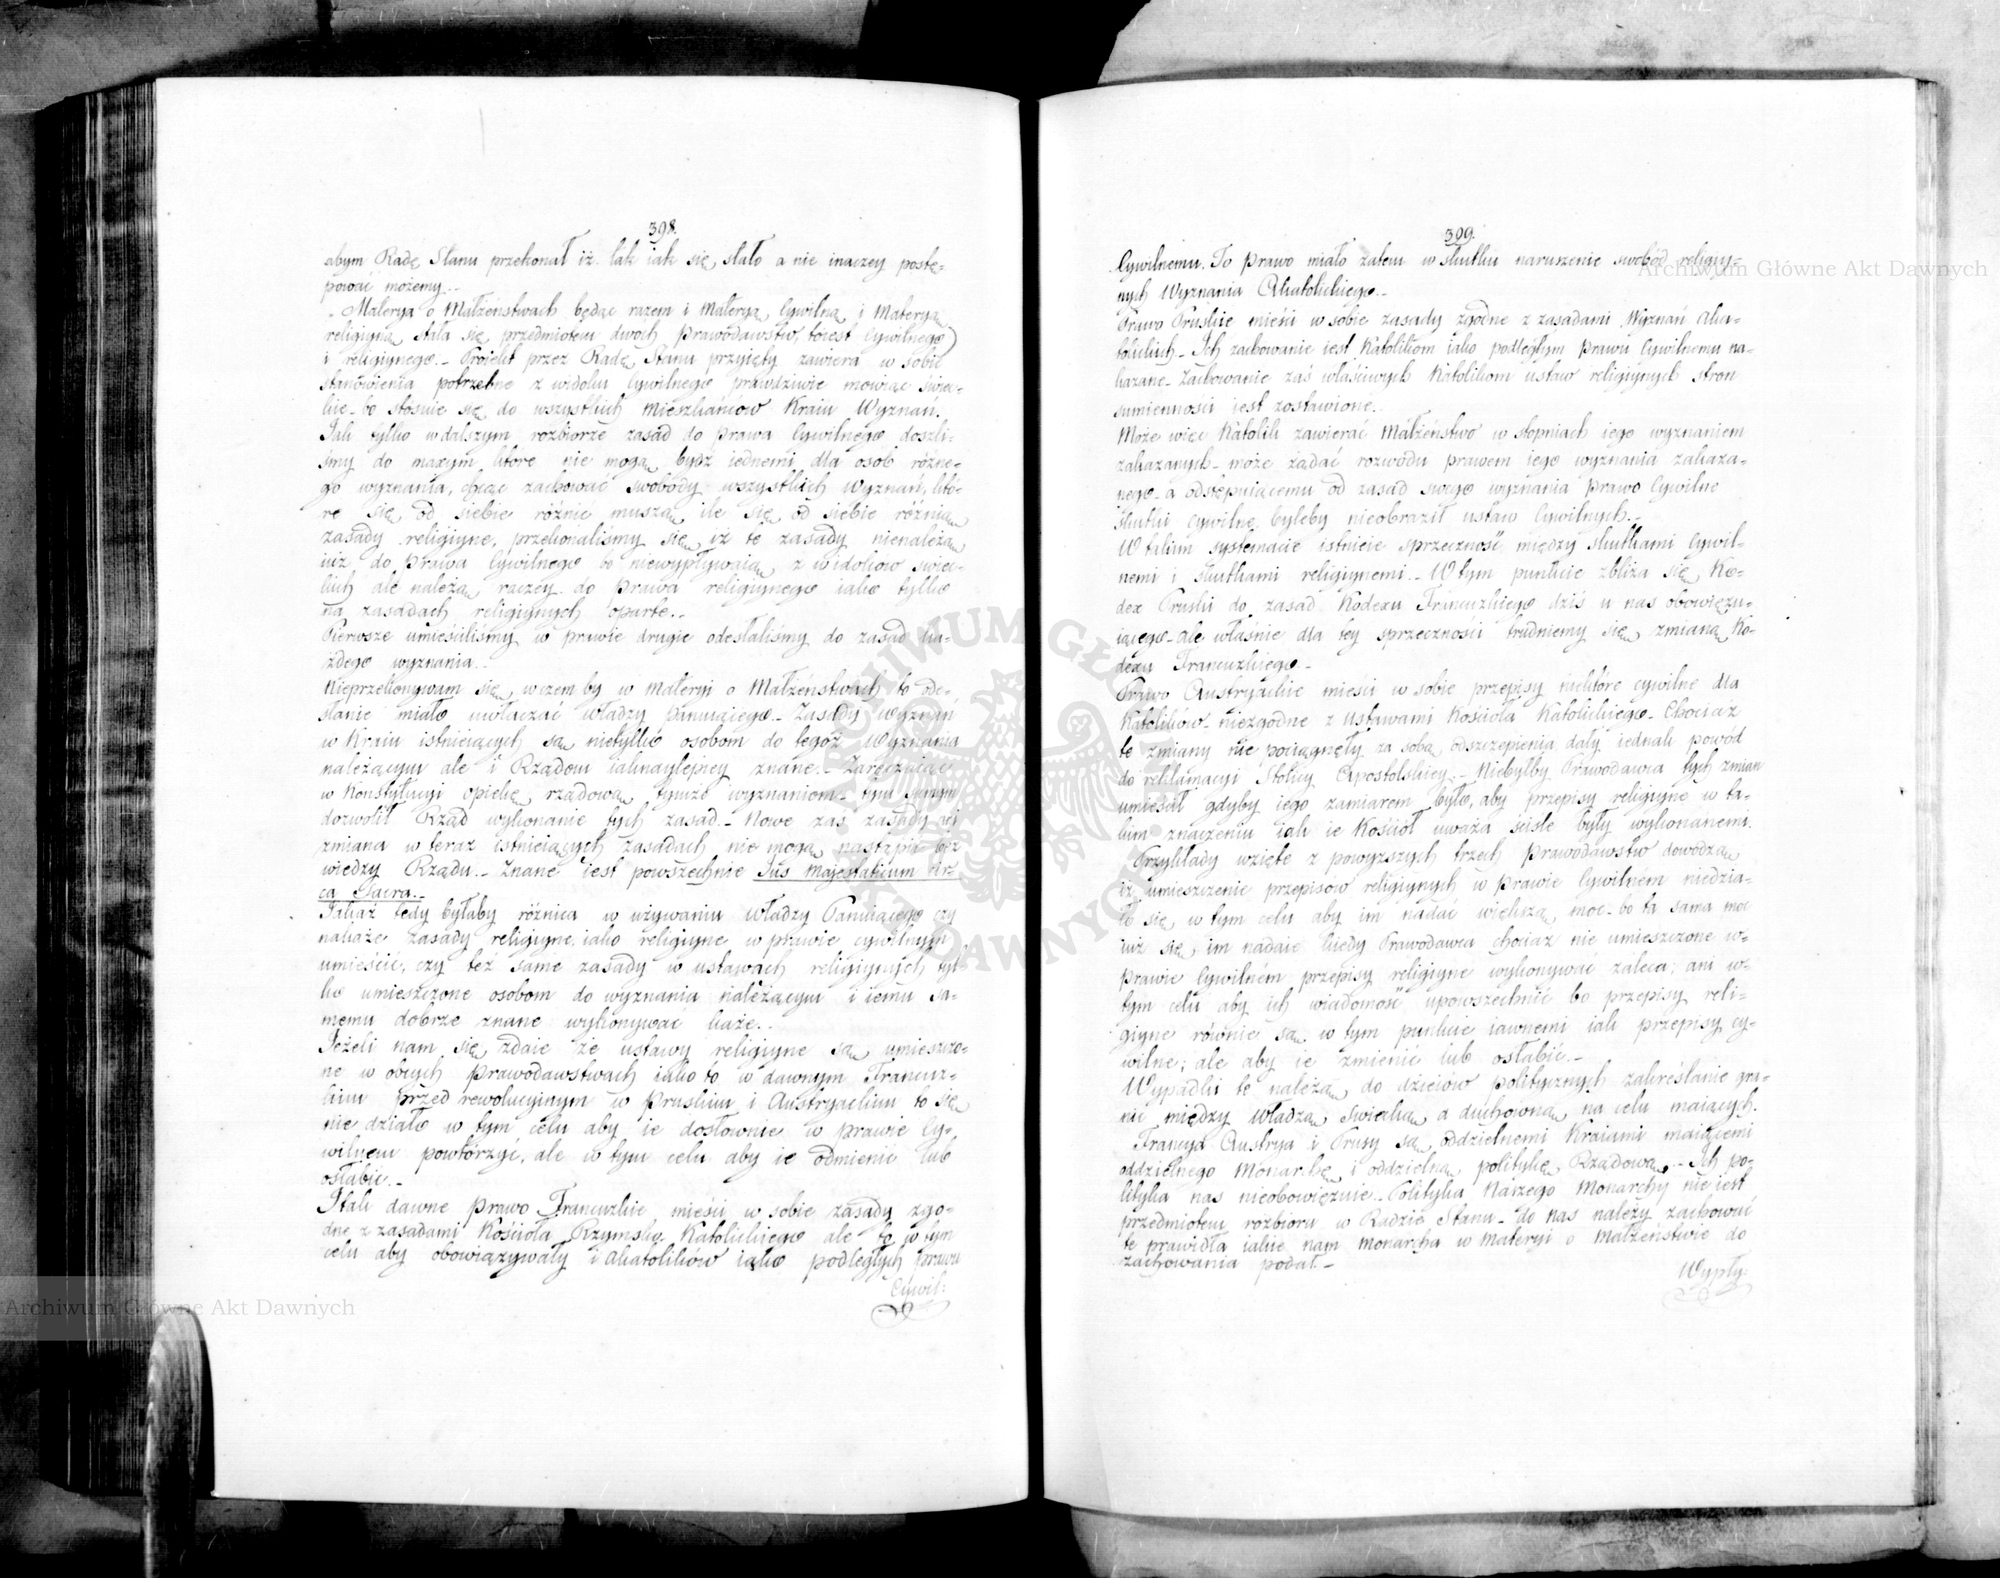 398.
abym Radę Stanu przekonał iż tak iak się stało a nie inaczey postę-
pować możemy.
Materya o Małżeństwach będąc razem i Materyą Cywilną i Materyą
religiyną stała się przedmiotem dwóch prawodawstw, toiest Cywilnego
i religiynego. Proiekt przez Radę Stanu przyięty zawiera w sobie
stanowienia potrzebne z widoku Cywilnego prawdziwie mowiąc swiec-
kie bo stosuie się do wszystkich Mieszkańców Kraiu Wyznań.
Jak tylko w dalszym rozbiorze zasad do Prawa Cywilnego doszli-
śmy do maxym które nie mogą bydź iednemi dla osob różne-
go wyznania, chcąc zachować swobody wszystkich Wyznań, któ-
re się od siebie różnić muszą ile się od siebie różnią
zasady religiyne, przekonaliśmy się iż te zasady nienależą
iuż do Prawa Cywilnego bo niewypływaią z widoków swiec-
kich ale należą raczey do prawa religiynego iako tylko
na zasadach religiynych oparte.
Pierwsze umieściliśmy w prawie drugie odesłaliśmy do zasad ka-
żdego wyznania.
Nieprzekonywam się w czem by w Materyi o Małżeństwach to ode-
słanie miało uwłaczać władzy panuiącego. Zasady wyznań
w Kraiu istnieiących są nietylko osobom do tegoż Wyznania
należącym ale i Rządowi iaknaylepiey znane. Zaręczaiąc
w Konstytucyi opiekę rządową tymże wyznaniom tym samym
dozwolił Rząd wykonanie tych zasad. Nowe zaś zasady ani
zmiana w teraz istnieiących zasadach nie mogą nastąpić bez
wiedzy Rządu. Znane iest powszechnie Jus Majestaticum cir-
ca Sacra.
Jakaż tedy byłaby różnica w używaniu Władzy Panuiącego czy
nakaże zasady religiyne iako religiyne w prawie cywilnym
umieścić, czy też same zasady w ustawach religiynych tyl-
ko umieszczone osobom do wyznania należącym i iemu sa-
memu dobrze znane wykonywać każe.
Jeżeli nam się zdaie że ustawy religiyne są umieszczo-
ne w obcych prawodawstwach iako to w dawnym Francuz-
kim przed rewolucyinym w Pruskim i Austryackim to się
nie działo w tym celu aby ie dosłownie w prawie Cy-
wilnem powtórzyć, ale w tym celu aby ie odmienić lub
osłabić.
I tak dawne prawo Francuzkie mieści w sobie zasady zgo-
dne z zasadami Kościoła Rzymsko Katolickiego ale to w tym
celu aby obowiązywały i akatolików iako podległych prawu
Cywil:
399.
Cywilnemu. To prawo miało zatem w skutku naruszenie swobód religiy-
nych Wyznania Akatolickiego.
Prawo Pruskie mieści w sobie zasady zgodne z zasadami Wyznań Aka-
tolickich. Ich zachowanie iest Katolikom iako podległym prawu Cywilnemu na-
kazane. Zachowanie zaś właściwych Katolikom ustaw religiynych stron
sumienności iest zostawione.
Może więc Katolik zawierać Małżeństwo w stopniach iego wyznaniem
zakazanych może żądać rozwodu prawem iego wyznania zakaza-
nego a odstępuiącemu od zasad swego wyznania Prawo Cywilne
skutki cywilne byleby nieobraził ustaw Cywilnych.
W takim systemacie istnieie sprzeczność między skutkami Cywil-
nemi i skutkami religiynemi. W tym punkcie zbliża się Ko-
dex Pruski do zasad Kodexu Francuzkiego dziś u nas obowięzu-
iącego ale właśnie dla tey sprzeczności trudniemy się zmianą Ko-
dexu Francuzkiego.
Prawo Austryackie mieści w sobie przepisy niektóre cywilne dla
Katolików niezgodne z ustawami Kościoła Katolickiego. Chociaż
te zmiany nie pociągnęły za sobą odszczepienia, dały iednak powód
do reklamacyi Stolicy Apostolskiey. Niebyłby Prawodawca tych zmian
umieścił gdyby iego zamiarem było, aby przepisy religiyne w ta-
kim znaczeniu iak ie Kościół uważa ściśle były wykonanemi.
Przykłady wzięte z powyższych trzech Prawodawstw dowodzą
iż umieszczenie przepisów religiynych w prawie Cywilném niedzia-
ło się w tym celu aby im nadać większą moc bo ta sama moc
iuż się im nadaie kiedy Prawodawca chociaż nie umieszczone w-
prawie Cywilném przepisy religiyne wykonywać zaleca; ani w-
tym celu aby ich wiadomość upowszechnić bo przepisy reli-
giyne równie są w tym punkcie iawnemi iak przepisy cy-
wilne; ale aby ie zmienić lub osłabić.
Wypadki te należą do dzieiów politycznych zakreślanie gra-
nic między władzą Swiecką a duchowną na celu maiących.
Francya Austrya i Prusy są oddzielnemi Kraiami maiącemi
oddzielnego Monarchę i oddzielną politykę Rządową. Ich po-
lityka nas nieobowięzuie. Polityka Naszego Monarchy nie iest
przedmiotem rozbioru w Radzie Stanu do nas należy zachować
te prawidła iakie nam Monarcha w Materyi o Małżeństwie do
zachowania podał.
Wypły-
Archiwum Główne Akt Dawnych
Archiwum Główne Akt Dawnych
ARCHIWUM GŁÓWNE AKT DAWNYCH